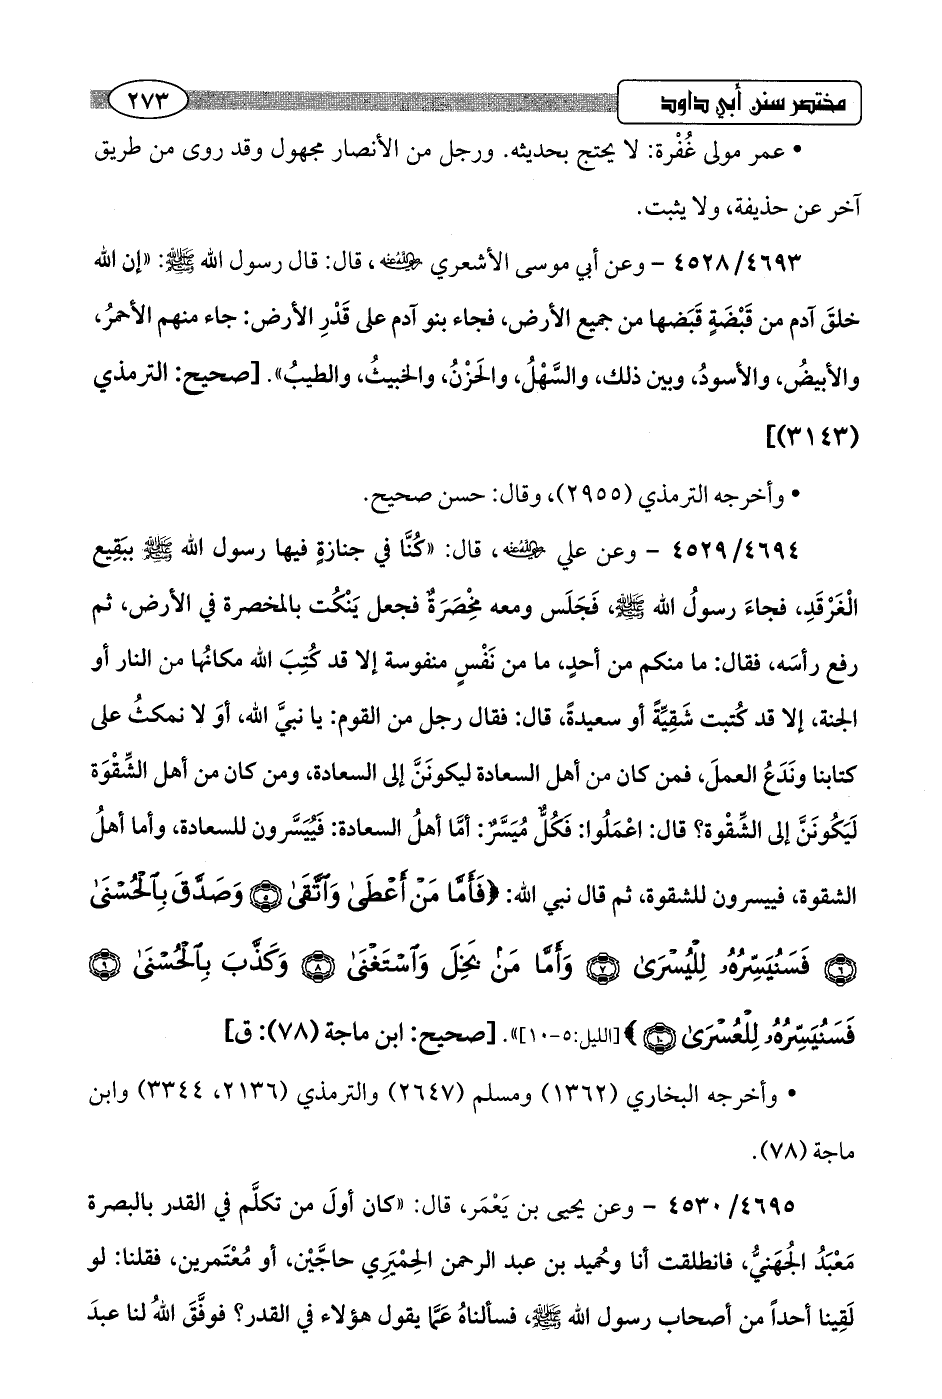 مختصر سنن أبي داود ٢٧٣
• عمر مولى غُفْرة: لا يحتج بحديثه. ورجل من الأنصار مجهول وقد روى من طريق
آخر عن حذيفة، ولا يثبت.
٤٥٢٨/٤٦٩٣ - وعن أبي موسى الأشعري رضي الله عنه، قال: قال رسول الله ﷺ: «إن الله
خلقَ آدم من قَبْضَةٍ قَبَضها من جميع الأرض، فجاء بنو آدم على قَدْرِ الأرض: جاء منهم الأحمرُ،
والأبيضُ، والأسودُ، وبين ذلك، والسَّهْلُ، والحَزْنُ، والخبيثُ، والطيبُ». [صحيح: الترمذي
(٣١٤٣)]
• وأخرجه الترمذي (٢٩٥٥)، وقال: حسن صحيح.
٤٥٢٩/٤٦٩٤ - وعن علي رضي الله عنه، قال: «كُنَّا في جنازةٍ فيها رسول الله ﷺ ببَقِيع
الْغَرْقَدِ، فجاءَ رسولُ الله ﷺ، فَجَلَس ومعه مِخْصَرَةٌ فجعل يَنْكُت بالمخصرة في الأرض، ثم
رفع رأسَه، فقال: ما منكم من أحدٍ، ما من نَفْسٍ منفوسة إلا قد كُتِبَ الله مكانُها من النار أو
الجنة، إلا قد كُتبت شَقِيَّةً أو سعيدةً، قال: فقال رجل من القوم: يا نبيَّ الله، أوَ لا نمكثُ على
كتابنا ونَدَعُ العملَ، فمن كان من أهل السعادة ليكونَنَّ إلى السعادة، ومن كان من أهل الشِّقْوَة
لَيَكُونَنَّ إلى الشِّقْوة؟ قال: اعْمَلُوا: فَكُلٌّ مُيَسَّرٌ: أمَّا أهلُ السعادة: فَيُيَسَّرون للسعادة، وأما أهلُ
الشقوة، فييسرون للشقوة، ثم قال نبي الله: ﴿فَأَمَّا مَنْ أَعْطَىٰ وَٱتَّقَىٰ ۝٥ وَصَدَّقَ بِٱلْحُسْنَىٰ
۝٦ فَسَنُيَسِّرُهُۥ لِلْيُسْرَىٰ ۝٧ وَأَمَّا مَنۢ بَخِلَ وَٱسْتَغْنَىٰ ۝٨ وَكَذَّبَ بِٱلْحُسْنَىٰ ۝٩
فَسَنُيَسِّرُهُۥ لِلْعُسْرَىٰ ۝١٠﴾ [الليل:٥-١٠]». [صحيح: ابن ماجة (٧٨): ق]
• وأخرجه البخاري (١٣٦٢) ومسلم (٢٦٤٧) والترمذي (٢١٣٦، ٣٣٤٤) وابن
ماجة (٧٨).
٤٥٣٠/٤٦٩٥ - وعن يحيى بن يَعْمَر، قال: «كان أولَ من تكلَّم في القدر بالبصرة
مَعْبَدُ الجُهَنيُّ، فانطلقت أنا وحُميد بن عبد الرحمن الحِمْيَري حاجَّيْن، أو مُعْتَمرين، فقلنا: لو
لَقِينا أحداً من أصحاب رسول الله ﷺ، فسألناهُ عَمَّا يقول هؤلاء في القدر؟ فوفَّقَ اللهُ لنا عبدَ